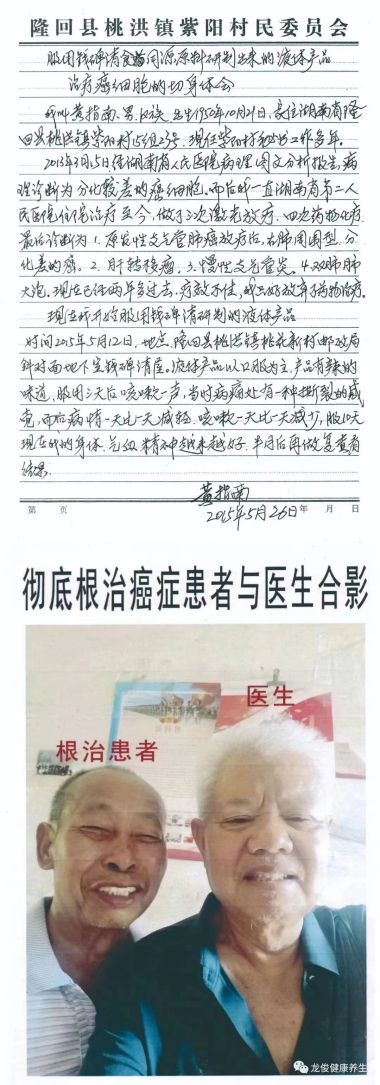 隆回县桃洪镇紫阳村民委员会
服用钱碑清食药同源原料研制出来的液体产品
治疗癌细胞的切身体会
我叫黄指南、男、汉族、出生1950年10月29日,家住湖南省隆
回县桃洪镇紫阳村15组23号.现任紫阳村 工作多年。
2013年3月5日经湖南省人民医院病理图文分析报告,病
理诊断为分化较差的癌细胞。而后就一直湖南省第二人
民医院住院治疗至今,做了三次激光放疗、四次药物化疗.
最后诊断为1.原发性支气管肺癌放疗后,右肺周围型,分
化差的癌。2.肝转移癌,3.慢性支气管炎。4.双肺肺
大泡.现在已经两年多过去,疗效不佳,我只好放弃药物治疗。
现在我开始服用钱碑清研制的液体产品
时间2015年5月12日,地点,隆回县桃洪镇桃花新村邮政局
斜对面地下室钱碑清屋。液体产品以口服为主.产品有辣的
味道,服用三天后咳嗽一声,当时病痛处有一种撕裂的感
觉,而后病情一天比一天减轻.咳嗽一天比一天减少,服10天
现在我的身体、气色、精神越来越好.半月后再做复查看
结果.
黄指南
2015年5月26日
第 页 年 月 日
彻底根治癌症患者与医生合影
医生
根治患者
龙俊健康养生